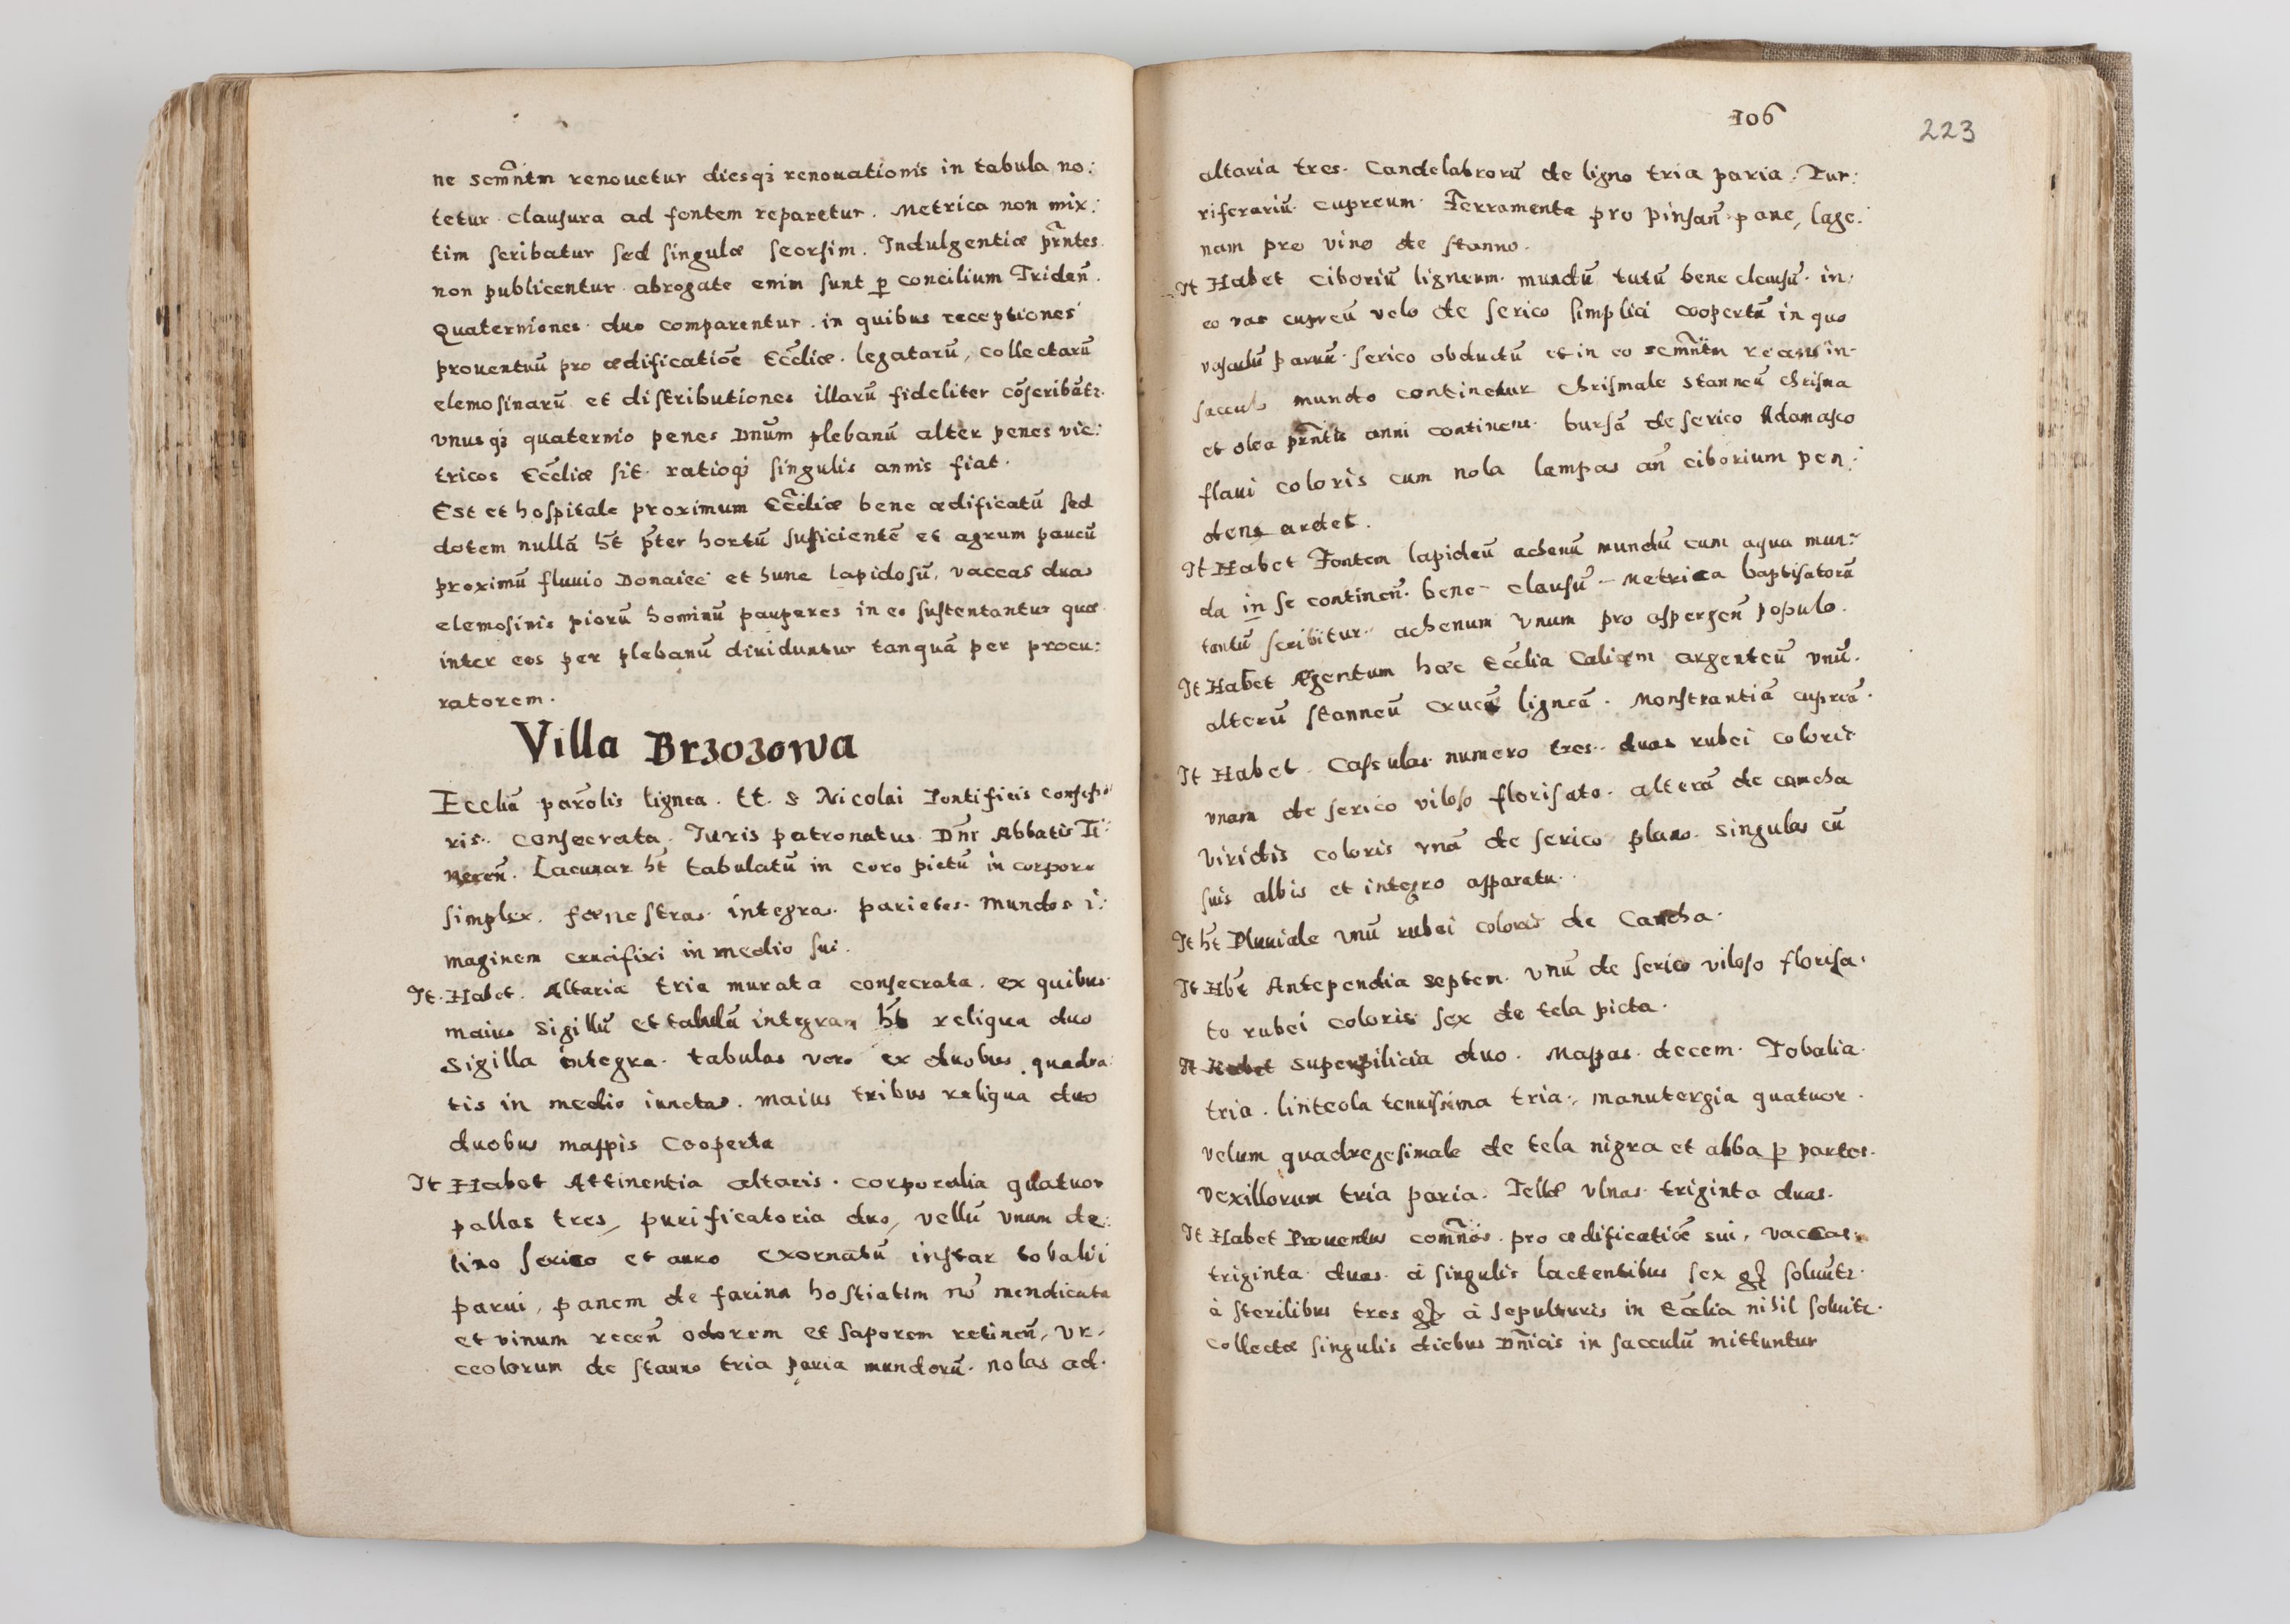 ne scm̃ntm renouetur diesqȝ renouationis in tabula no:
tetur clausura ad fontem reparetur. Metrica non mix:
tim scribatur sed singulæ seorsim. Indulgentiæ p̃rntes
non publicentur abrogate enim sunt ꝑ concilium Trideñ.
Quaterniones duo comparentur in quibus receptiones
prouentuũ pro ædificatioẽ Eccl̃iæ. legatarũ, collectarũ
elemosinarũ et distributiones illarũ fideliter cõscribãtr.
vnusqȝ quaternio penes Dnũm plebanũ alter penes vic:
tricos Eccl̃iæ sit ratioqȝ singulis annis fiat.
Est et hospitale proximum Eccl̃iæ bene ædificatũ sed
dotem nullã ht̃ p̃ter hortũ sufficientẽ et agrum paucũ
proximũ fluuio Donaiec et hunc lapidosũ, vaccas duas
elemosinis piorũ hominũ pauperes in eo sustentantur quæ
inter eos per plebanũ diuiduntur tanquã per procu:
ratorem.
Villa Brzozowa
Eccliã parõlis lignea. tt. S Nicolai Pontificis confesso
ris. consecrata. Iuris patronatus Dnĩ Abbatis Ti:
neceñ. Lacunar ht̃ tabulatũ in coro pictũ in corpore
simplex. fænestras integras parietes mundos i:
maginem crucifixi in medio sui.
It. Habet. Altaria tria murata consecrata. ex quibus
maius sigillũ et tabulã integram ht̃ reliqua duo
sigilla integra. tabulas vero ex duobus quadra
tis in medio iunctas. maius tribus reliqua duo
duobus mappis Cooperta
It Habet Attinentia altaris. corporalia quatuor
pallas tres, purificatoria duo, vellũ vnum de
lino serico et auro exornatũ instar tobalii
parui, panem de farina hostiatim nõ mendicata
et vinum receñ odorem et saporem retineñ, vr,
ceolorum de stanno tria paria mundorũ. nolas ad.
106
223
altaria tres. Candelabrorũ de ligno tria paria. Tur:
riferariũ cupreum. Ferramenta pro pinsañ pane, lage:
nam pro vino de stanno.
It Habet Ciboriũ ligneum mundũ tutũ bene clausũ. in
eo vas cupreũ velo de serico simplici coopertũ in quo
vasculũ paruũ serico obductũ et in eo scmñtm recens in
sacculo mundo continetur Chrismale stanneũ chrisma
et olea prñtis anni continens. bursã de serico Adamasco
flaui coloris cum nola lampas añ ciborium pen:
dens ardet.
It Habet Fontem lapideũ achenũ mundũ cum aqua mun:
da in se contineñ. bene clausũ. Metrica baptisatorũ
tantũ scribitur. achenum vnum pro aspergeñ populo.
It Habet Argentum hæc Eccl̃ia Calicem argenteũ vnũ.
alterũ stanneũ crucẽ ligneã. Monstrantiã cupreã.
It Habet. Casulas numero tres. duas rubei coloris
vnam de serico viloso florisato. alterã de camcha
viridis coloris vnã de serico plano. singulas cũ
suis albis et integro apparatu.
It ht̃ Pluuiale vnũ rubei coloris de Camcha.
It Hbt̃ Antependia septem. vnũ de serico viloso florisa:
to rubei coloris sex de tela picta.
It Habet superpilicia duo. Mappas decem. Tobalia
tria. linteola tenuissima tria, manutergia quatuor.
velum quadregesimale de tela nigra et alba ꝑ partes.
vexillorum tria paria. Tellæ vlnas triginta duas.
It Habet Prouentus comñes. pro ædificatiõe sui, vaccas
triginta duas à singulis lactentibus sex gr soluũtr.
à sterilibus tres gr à sepulturis in Eccl̃ia nihil soluitr.
collectæ singulis diebus Dñicis in sacculũ mittuntur